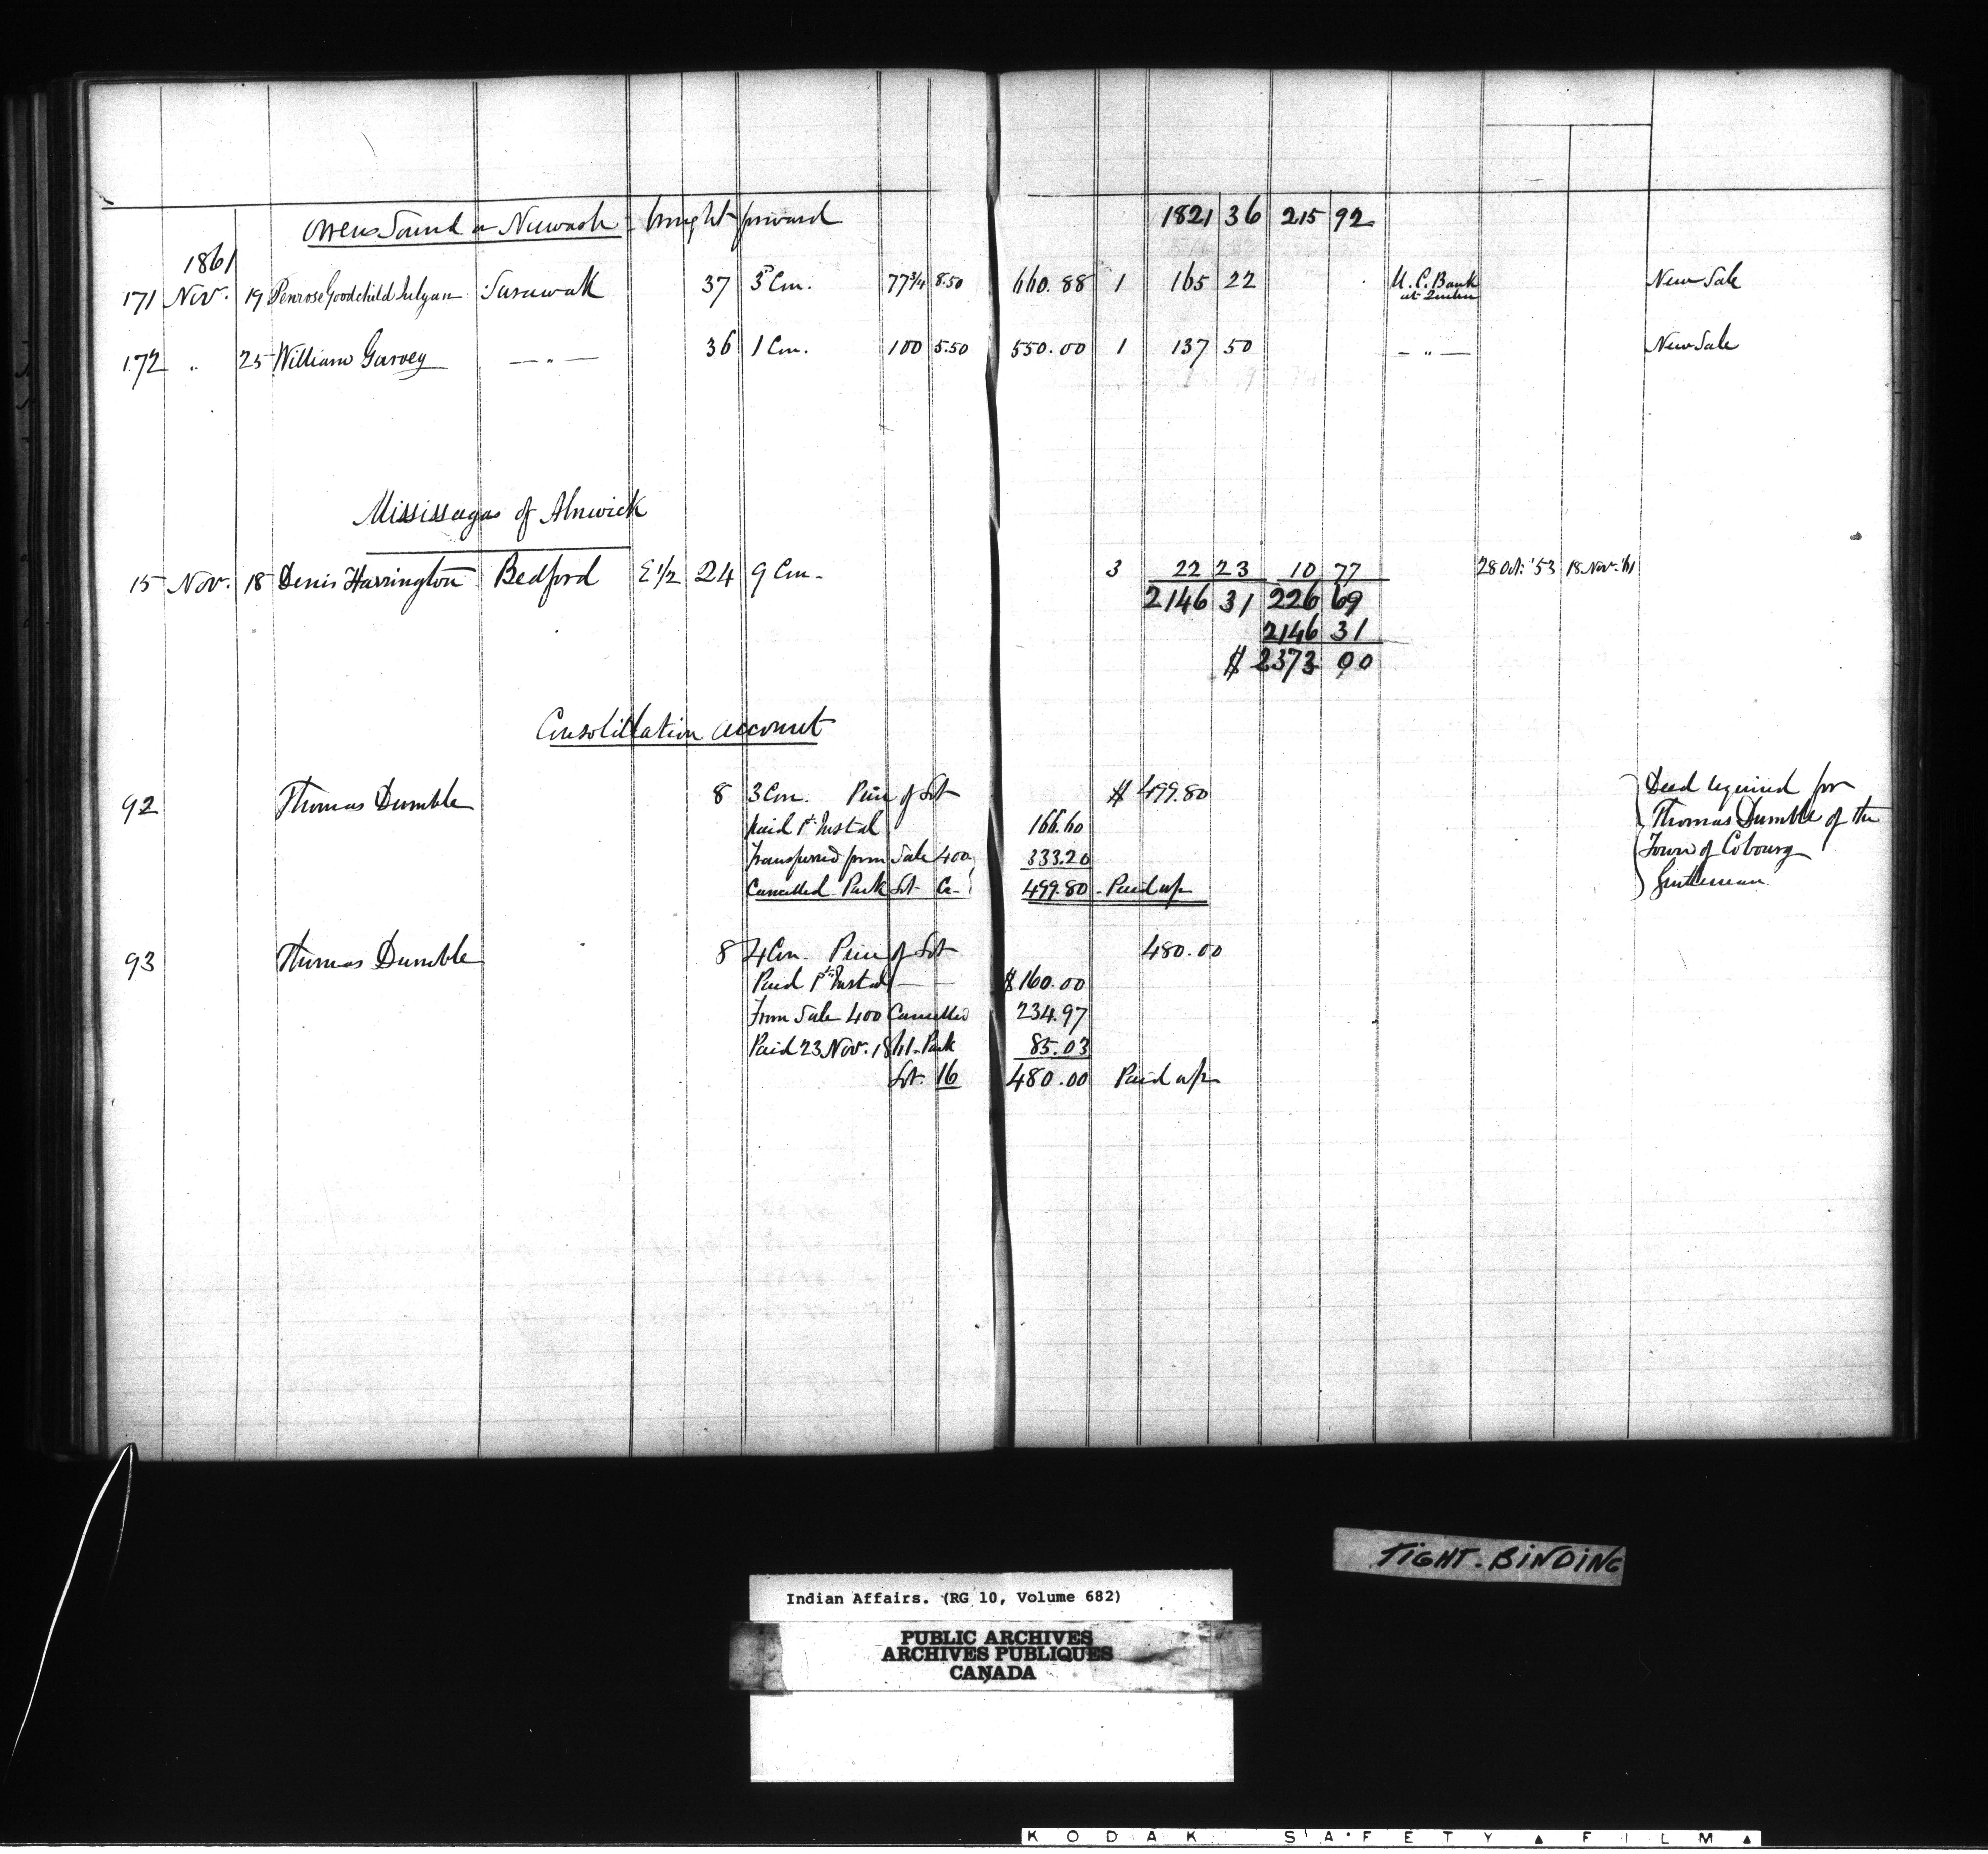 Owen Sound or Newash - brought forward 1821 36 215 92
1861
171 Nov. 19 Penrose Goodchild Julyan Sarawak 37 3rd Con. 77 3/4 8.50 660.88 1 165 22 U.C. Bank at Quebec New Sale
172 " 25 William Garvey — " — 36 1 Con. 100 5.50 550.00 1 137 50 — " — New Sale
Mississagas of Alnwick
15 Nov. 18 Denis Harrington Bedford E 1/2 24 9 Con. 3 22 23 10 77 28 Oct. '53 18 Nov. '61
2146 31 226 69
2146 31
$ 2373 00
Consolidation account
92 Thomas Dumble 8 3 Con. Price of Lot $ 499.80 Deed required for
paid 1st Instal 166.60 Thomas Dumble of the
Transferred from Sale 400 333.20 Town of Cobourg
Cancelled Park Lot 499.80 - Paid up Gentleman
93 Thomas Dumble 8 4 Con. Price of Lot 480.00
Paid 1st Instal — — $160.00
From Sale 400 Cancelled 234.97
Paid 23 Nov. 1861 - Park 85.03
Lot 16 480.00 Paid up
TIGHT-BINDING
Indian Affairs. (RG 10, Volume 682)
PUBLIC ARCHIVES
ARCHIVES PUBLIQUES
CANADA
KODAK SAFETY ▲ FILM ▲